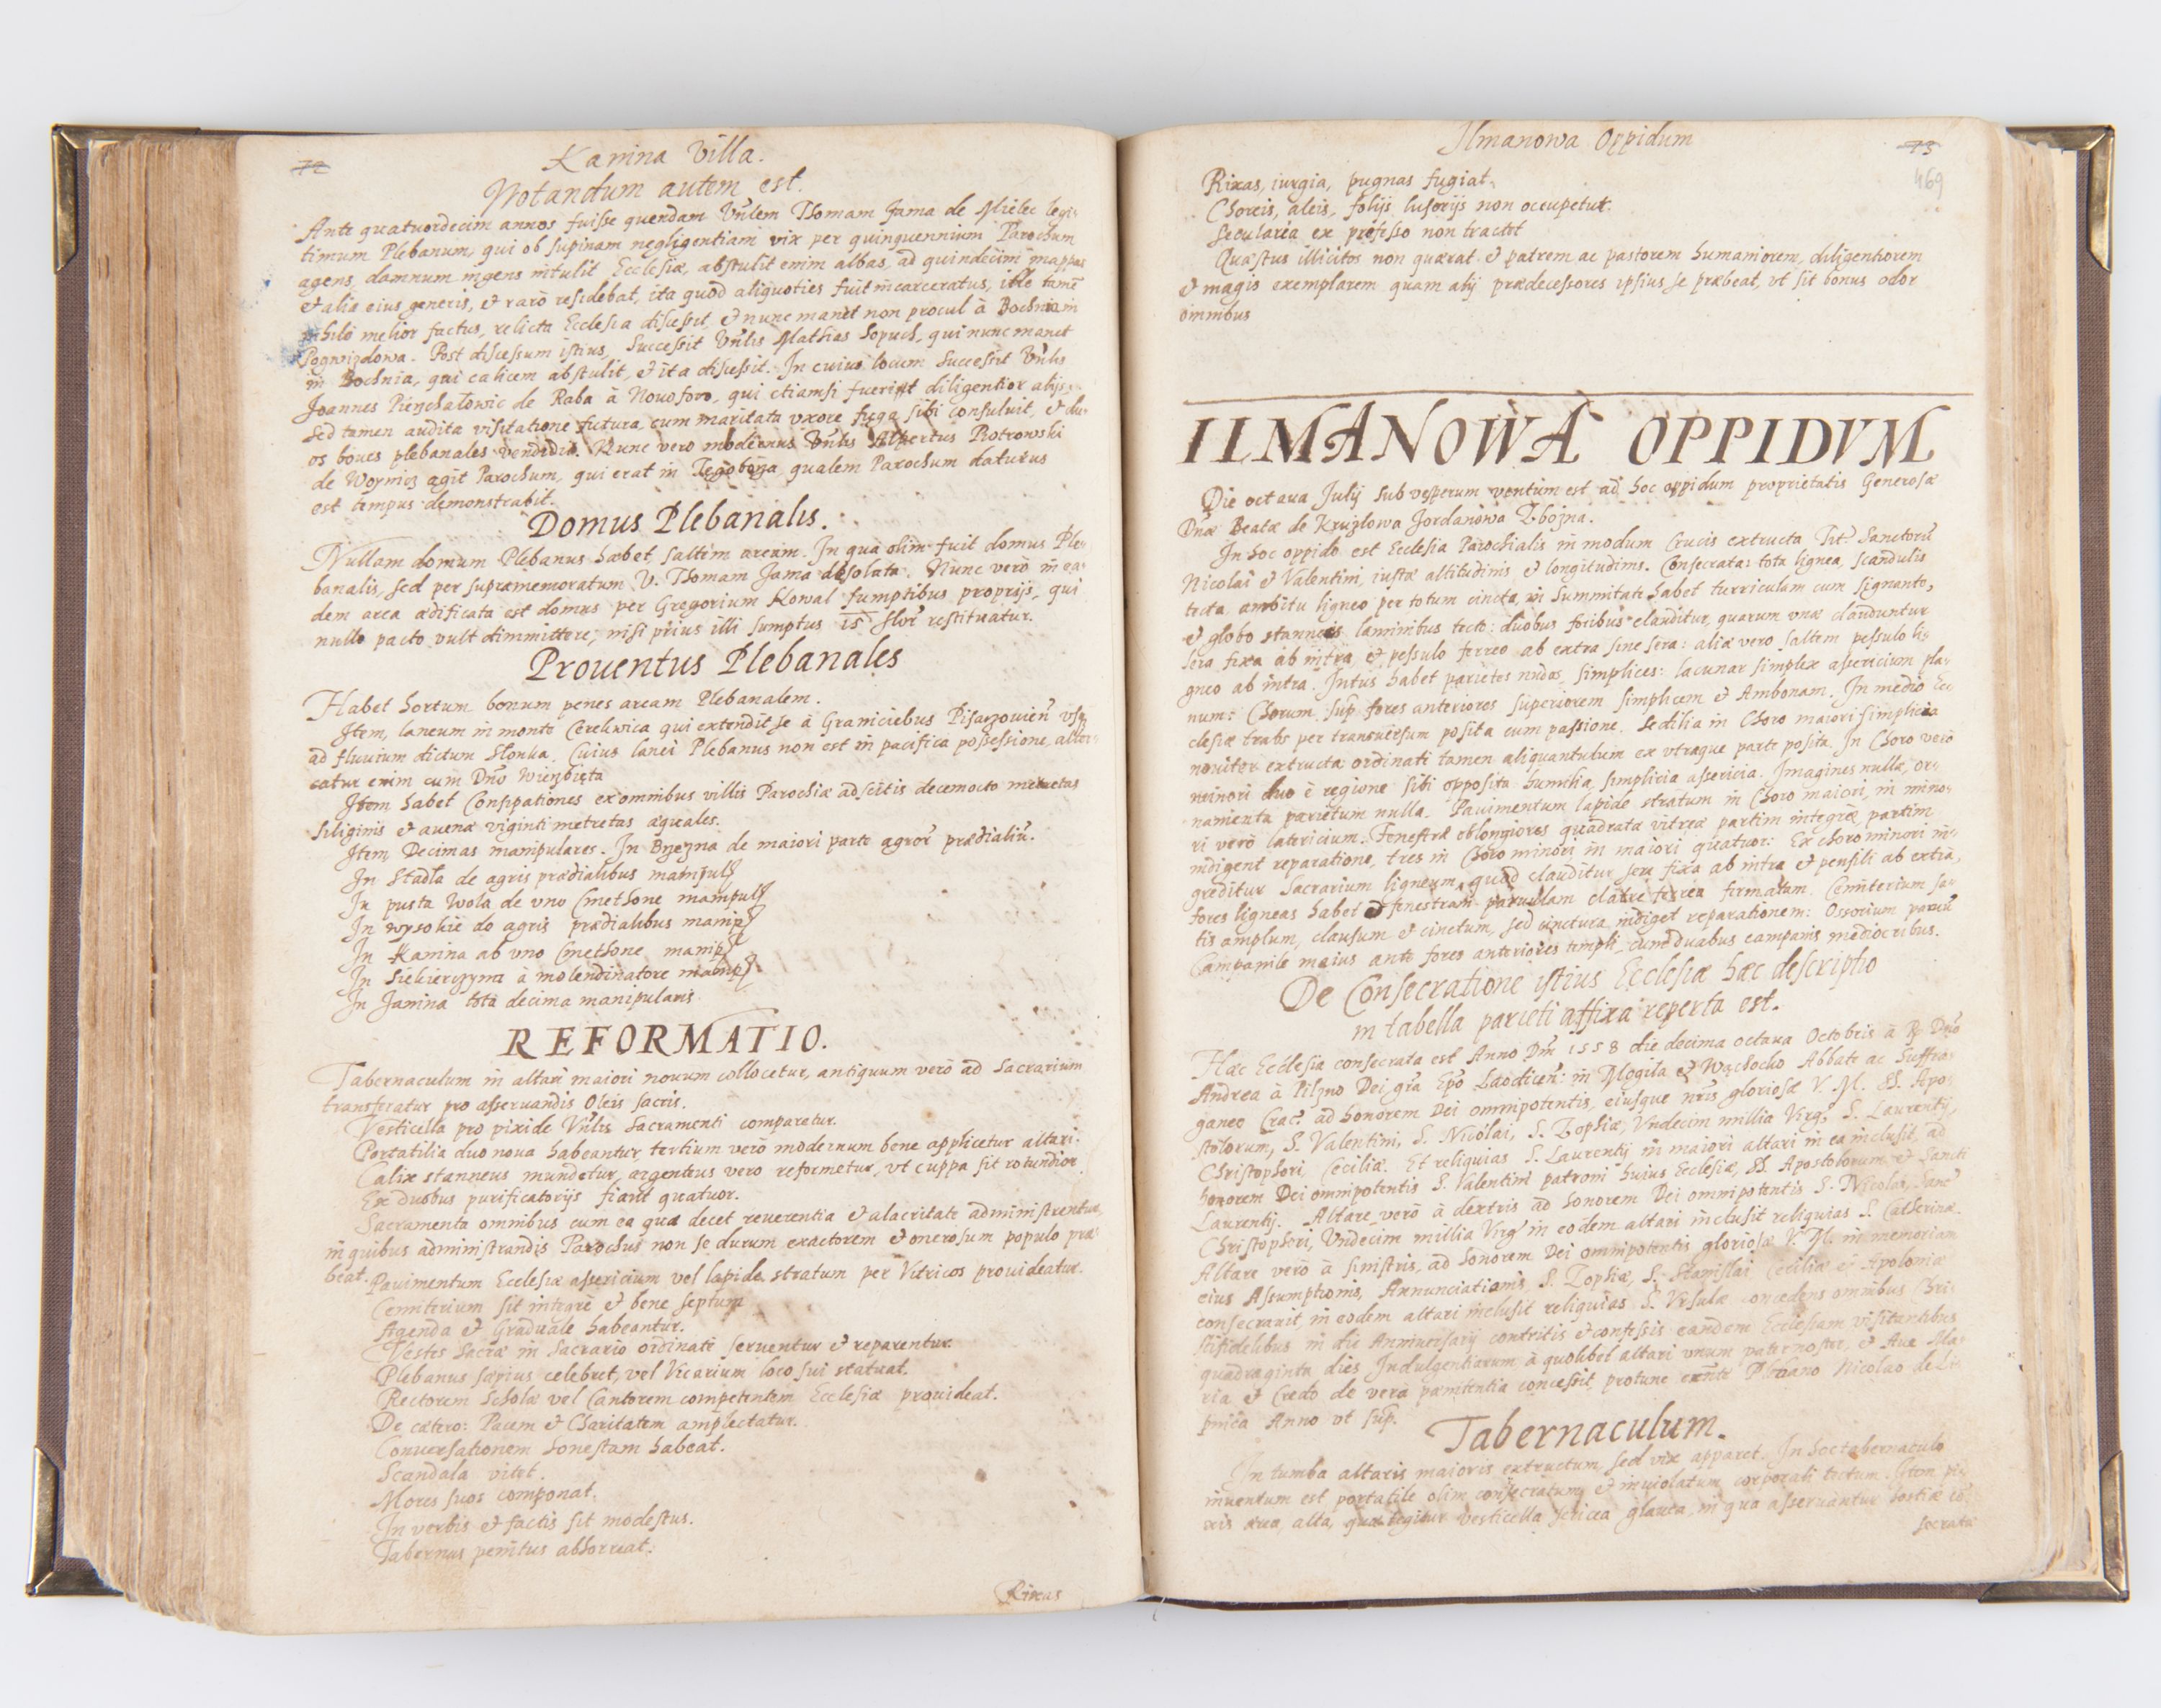 72
Kanina Villa.
Notandum autem est.
Ante quatuordecim annos fuisse quendam Vñlem Thomam Jama de Mielec legi-
timum Plebanum, qui ob supinam negligentiam vix per quinquennium Parochum
agens, damnum ingens intulit Ecclesiæ, abstulit enim albas, ad quindecim mappas
et alia eius generis, et rarò residebat, ita quòd aliquoties fuit incarceratus, ille tamẽ
nihilo melior factus, relicta Ecclesia discessit, et nunc manet non procul à Bochnia in
Pogwizdowa. Post discessum istius, Successit Vñlis Mathias Sopuch, qui nunc manet
in Bochnia, qui calicem abstulit, et ita discessit. In cuius locum Successit Vñlis
Joannes Pierzchałowic de Raba à Nouoforo, qui etiamsi fuerit diligentior alijs,
sed tamen audita visitatione futura, cum maritata vxore fuga sibi consuluit, et du-
os boues plebanales vendidit. Nunc vero modernus Vñlis Albertus Piotrowski
de Woynicz agit Parochum, qui erat in Tegoborza, qualem Parochum daturus
est tempus demonstrabit.
Domus Plebanalis.
Nullam domum Plebanus habet, saltim aream. In qua olim fuit domus Ple-
banalis, sed per supramemoratum V. Thomam Jama desolata. Nunc vero in ea-
dem area ædificata est domus per Gregorium Kowal sumptibus proprijs, qui
nullo pacto vult dimmittere, nisi prius illi sumptus 15 flor restituatur.
Prouentus Plebanales
Habet hortum bonum penes aream Plebanalem.
Item, laneum in monte Cerekwica qui extendit se à Graniciebus Pisarzouieñ vsq
ad fluuium dictum Słonka. Cuius lanei Plebanus non est in pacifica possessione, alter-
catur enim cum Dño Wierzbięta
Item habet Consipationes ex omnibus villis Parochiæ adscitis decemocto metretas
siliginis et auenæ viginti metretas æquales.
Item Decimas manipulares. In Brzezna de maiori parte agror prædialiũ.
In Stadła de agris prædialibus manipul
In pusta Wola de vno Cmethone manipul
In wysokie de agris prædialibus manip
In Kanina ab vno Cmethone manip
In Siekierczyna à molendinatore manip
In Janina tota decima manipularis
REFORMATIO.
Tabernaculum in altari maiori nouum collocetur, antiquum verò ad Sacrarium
transferatur pro asseruandis Oleis sacris.
Vesticella pro pixide Vñlis Sacramenti comparetur.
Portatilia duo noua habeantur, tertium verò modernum bene applicetur altari.
Calix stanneus mundetur, argenteus vero reformetur, vt cuppa sit rotundior
Ex duobus purificatorijs fiant quatuor.
Sacramenta omnibus cum ea qua decet reuerentia et alacritate administrentur,
in quibus administrandis Parochus non se durum exactorem et onerosum populo præ-
beat.
Pauimentum Ecclesiæ assericium vel lapide stratum per Vitricos prouideatur.
Cemiterium sit integrè et bene septum
Agenda et Graduale habeantur.
Vestes Sacræ in Sacrario ordinatè seruentur et reparentur.
Plebanus sæpius celebret, vel Vicarium loco sui statuat.
Rectorem Scholæ vel Cantorem competentem Ecclesiæ prouideat.
De cætero: Pacem et Charitatem amplectatur.
Conuersationem honestam habeat.
Scandala vitet.
Mores suos componat.
In verbis et factis sit modestus.
Tabernas penitus abhorreat.
Rixas
Ilmanowa Oppidum
73
469
Rixas, iurgia, pugnas fugiat,
Choreis, aleis, folijs lusorijs non occupetur.
Secularia ex professo non tractet
Quæstus illicitos non quærat et patrem ac pastorem humaniorem, diligentiorem
et magis exemplarem quam alij prædecessores ipsius se præbeat, vt sit bonus odor
omnibus
ILMANOWA OPPIDVM
Die octaua Julij sub vesperum ventum est ad hoc oppidum proprietatis Generosæ
Dñæ Beatæ de Krużlowa Jordanowa Zbozna.
In hoc oppido est Ecclesia Parochialis in modum Crucis extructa Tit Sanctorũ
Nicolai et Valentini, iustæ altitudinis et longitudinis. Consecrata: tota lignea, scandulis
tecta, ambitu ligneo per totum cincta, in summitate habet turriculam cum signante,
et globo stanneis laminibus tecto: duobus foribus clauditur, quarum vnæ clauduntur
sera fixa ab intra, et pessulo ferreo ab extra sine sera: aliæ vero saltem pessulo li-
gneo ab intra. Intus habet parietes nudos simplices: lacunar simplex assericium pla-
num: Chorum sup fores anteriores superiorem simplicem et Ambonam. In medio Ec-
clesiæ trabs per transuersum posita cum passione. Sedilia in Choro maiori simplicia
nouiter extructa ordinati tamen aliquantulum ex vtraque parte posita. In Choro verò
minori duo è regione sibi opposita humilia, simplicia assericia. Imagines nullæ, or-
namenta parietum nulla. Pauimentum lapide stratum in Choro maiori, in mino-
ri verò latericium. Fenestræ oblongiores quadratæ vitreæ partim integræ partim
indigent reparatione, tres in Choro minori, in maiori quatuor: Ex choro minori in-
greditur Sacrarium ligneum, quod clauditur sera fixa ab intra et pensili ab extra,
fores ligneas habet et fenestram paruulam clatre ferrea firmatam. Cemiterium sa-
tis amplum, clausum et cinctum, sed cinctura indiget reparationem: Ossorium paruũ
Campanile maius ante fores anteriores templi cum duabus campanis mediocribus.
De Consecratione istius Ecclesiæ hæc descriptio
in tabella parieti affixa reperta est.
Hæc Ecclesia consecrata est Anno Dñi 1558 die decima octaua Octobris à R. Dño
Andrea à Pilzno Dei gra Epo Laodiceñ: in Mogila et Wąchocko Abbate ac Suffra-
ganeo Crac. ad honorem Dei omnipotentis, eiusque nris gloriosæ V. M. SS. Apo-
stolorum, S. Valentini, S. Nicolai, S. Zophiæ, Vndecim millia Virg, S. Laurentij,
Christophori Ceciliæ. Et reliquias S. Laurentij in maiori altari in ea inclusit, ad
honorem Dei omnipotentis S. Valentini patroni huius Ecclesiæ, SS. Apostolorum et Sancti
Laurentij. Altare verò à dextris ad honorem Dei omnipotentis S. Nicolai, Sanc
Christopheri, Vndecim millia Virg in eodem altari inclusit reliquias S. Catherinæ.
Altare verò à sinistris, ad honorem Dei omnipotentis gloriosæ V. M. in memoriam
eius Assumptionis, Annunciationis, S. Zophiæ, S. Stanislai Ceciliæ et Apoloniæ
consecrauit, in eodem altari inclusit reliquias S. Vrsulæ concedens omnibus Chri-
stifidelibus in die Anniuersarij contritis et confessis eandem Ecclesiam visitantibus
quadraginta dies Indulgentiarum à quolibet altari vnum paternoster, et Aue Ma-
ria et Credo de vera pænitentia concessit, protunc exñte Plebano Nicolao de Li-
pnica Anno vt sup.
Tabernaculum.
In tumba altaris maioris extructum, sed vix apparet. In hoc tabernaculo
inuentum est portatile olim consecratum et inuiolatum corporali tectum. Item pi-
xis ærea, alta, qua tegitur vesticella sericea glauca, in qua asseruantur hostiæ cõ-
secratæ